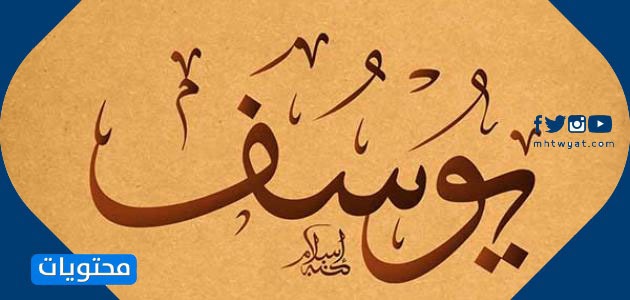 يوسف
mhtwyat.com
كتبه إسلام
محتويات